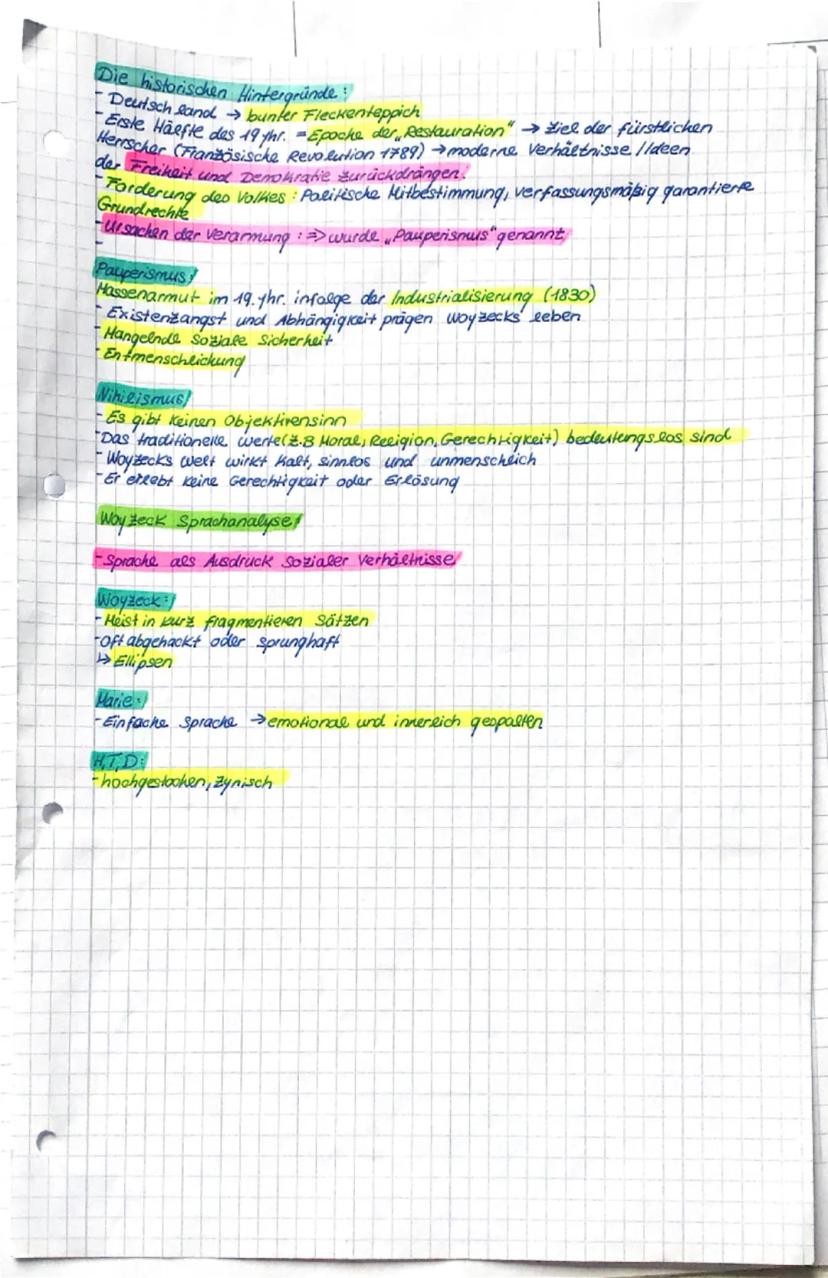 Die historischen Hintergründe:
- Deutschland → bunter Fleckenteppich
- Erste Häfte des 19 Jhr. = Epoche der „Restauration" → Ziel der fürstlichen
Herrscher (Französische Revolution 1789) → moderne Verhältnisse/Ideen
der Freiheit und Demokratie zurückdrängen.
- Forderung des Volkes: Politische Mitbestimmung, verfassungsmäßig garantierte
Grundrechte
- Ursachen der Verarmung: => wurde „Pauperismus" genannt
-
Pauperismus:
Massenarmut im 19. Jhr. infolge der Industrialisierung (1830)
- Existenzangst und Abhängigkeit prägen Woyzecks Leben
- Mangelnde Soziale Sicherheit
- Entmenschlichung
Nihilismus
- Es gibt keinen Objektivensinn
- Das traditionelle Werte (z.B Moral, Religion, Gerechtigkeit) bedeutungslos sind
- Woyzecks Welt wirkt kalt, sinnlos und unmenschlich
- Er erlebt keine Gerechtigkeit oder Erlösung
Woyzeck Sprachanalyse
- Sprache als Ausdruck Sozialer Verhältnisse
Woyzeck:
- Meist in kurz fragmentieren Sätzen
- Oft abgehackt oder sprunghaft
↳ Ellipsen
Marie:
- Einfache Sprache → emotional und innerlich gespalten
H,T,D:
- hochgestochen, zynisch